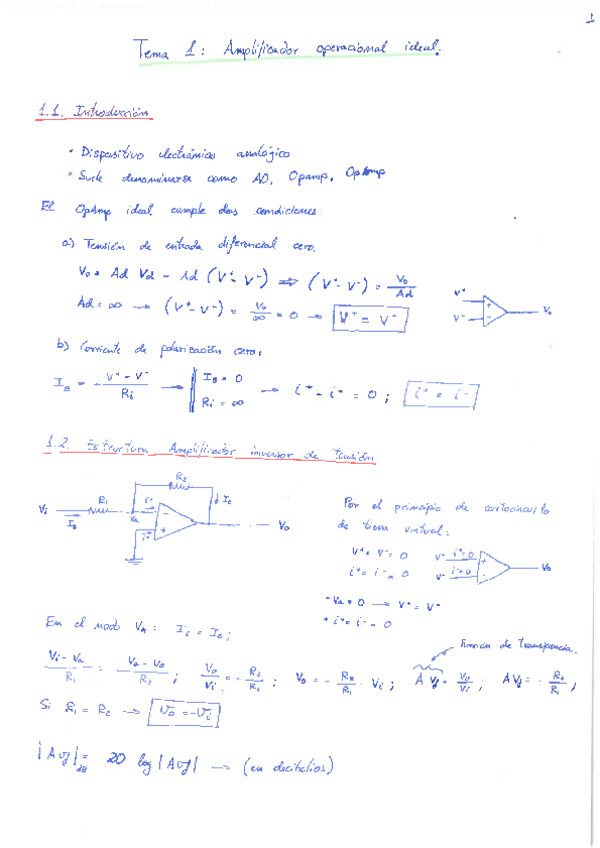 1
Tema 1: Amplificador operacional ideal.
1.1. Introducción
• Dispositivo electrónico analógico
• Suele denominarse como AO, Opamp, OpAmp
El OpAmp ideal cumple dos condiciones:
a) Tensión de entrada diferencial cero.
Vo = Ad Vd = Ad (V⁺ - V⁻) ⇒ (V⁺ - V⁻) = Vo/Ad
Ad = ∞ → (V⁺ - V⁻) = Vo/∞ = 0 → V⁺ = V⁻
V⁺ + V⁻ - Vo
b) Corriente de polarización cero.
I_B = V⁺ - V⁻ / Ri → I_B = 0 Ri = ∞ → i⁺ - i⁻ = 0 ; i⁺ = i⁻
1.2. Estructura Amplificador inversor de tensión
R2
Vi R1 Va i⁻ - + i⁺ Vo
Por el principio de cortocircuito
de tierra virtual:
V⁺ = V⁻ = 0 V⁺ i⁺=0 +
i⁺ = i⁻ = 0 V⁻ i⁻=0 - Vo
• Va = 0 → V⁺ = V⁻
• i⁺ = i⁻ = 0
En el nodo VA:
Función de transferencia.
Vi - Va / R1 = - Va - Vo / R2 ; Vo/Vi = - R2/R1 ; Vo = - R2/R1 · Vi ; AVf = Vo/Vi ; AVf = - R2/R1 ;
Si R1 = R2 → Vo = -Vi
|Avf|dB = 20 log |Avf| → (en decibelios)